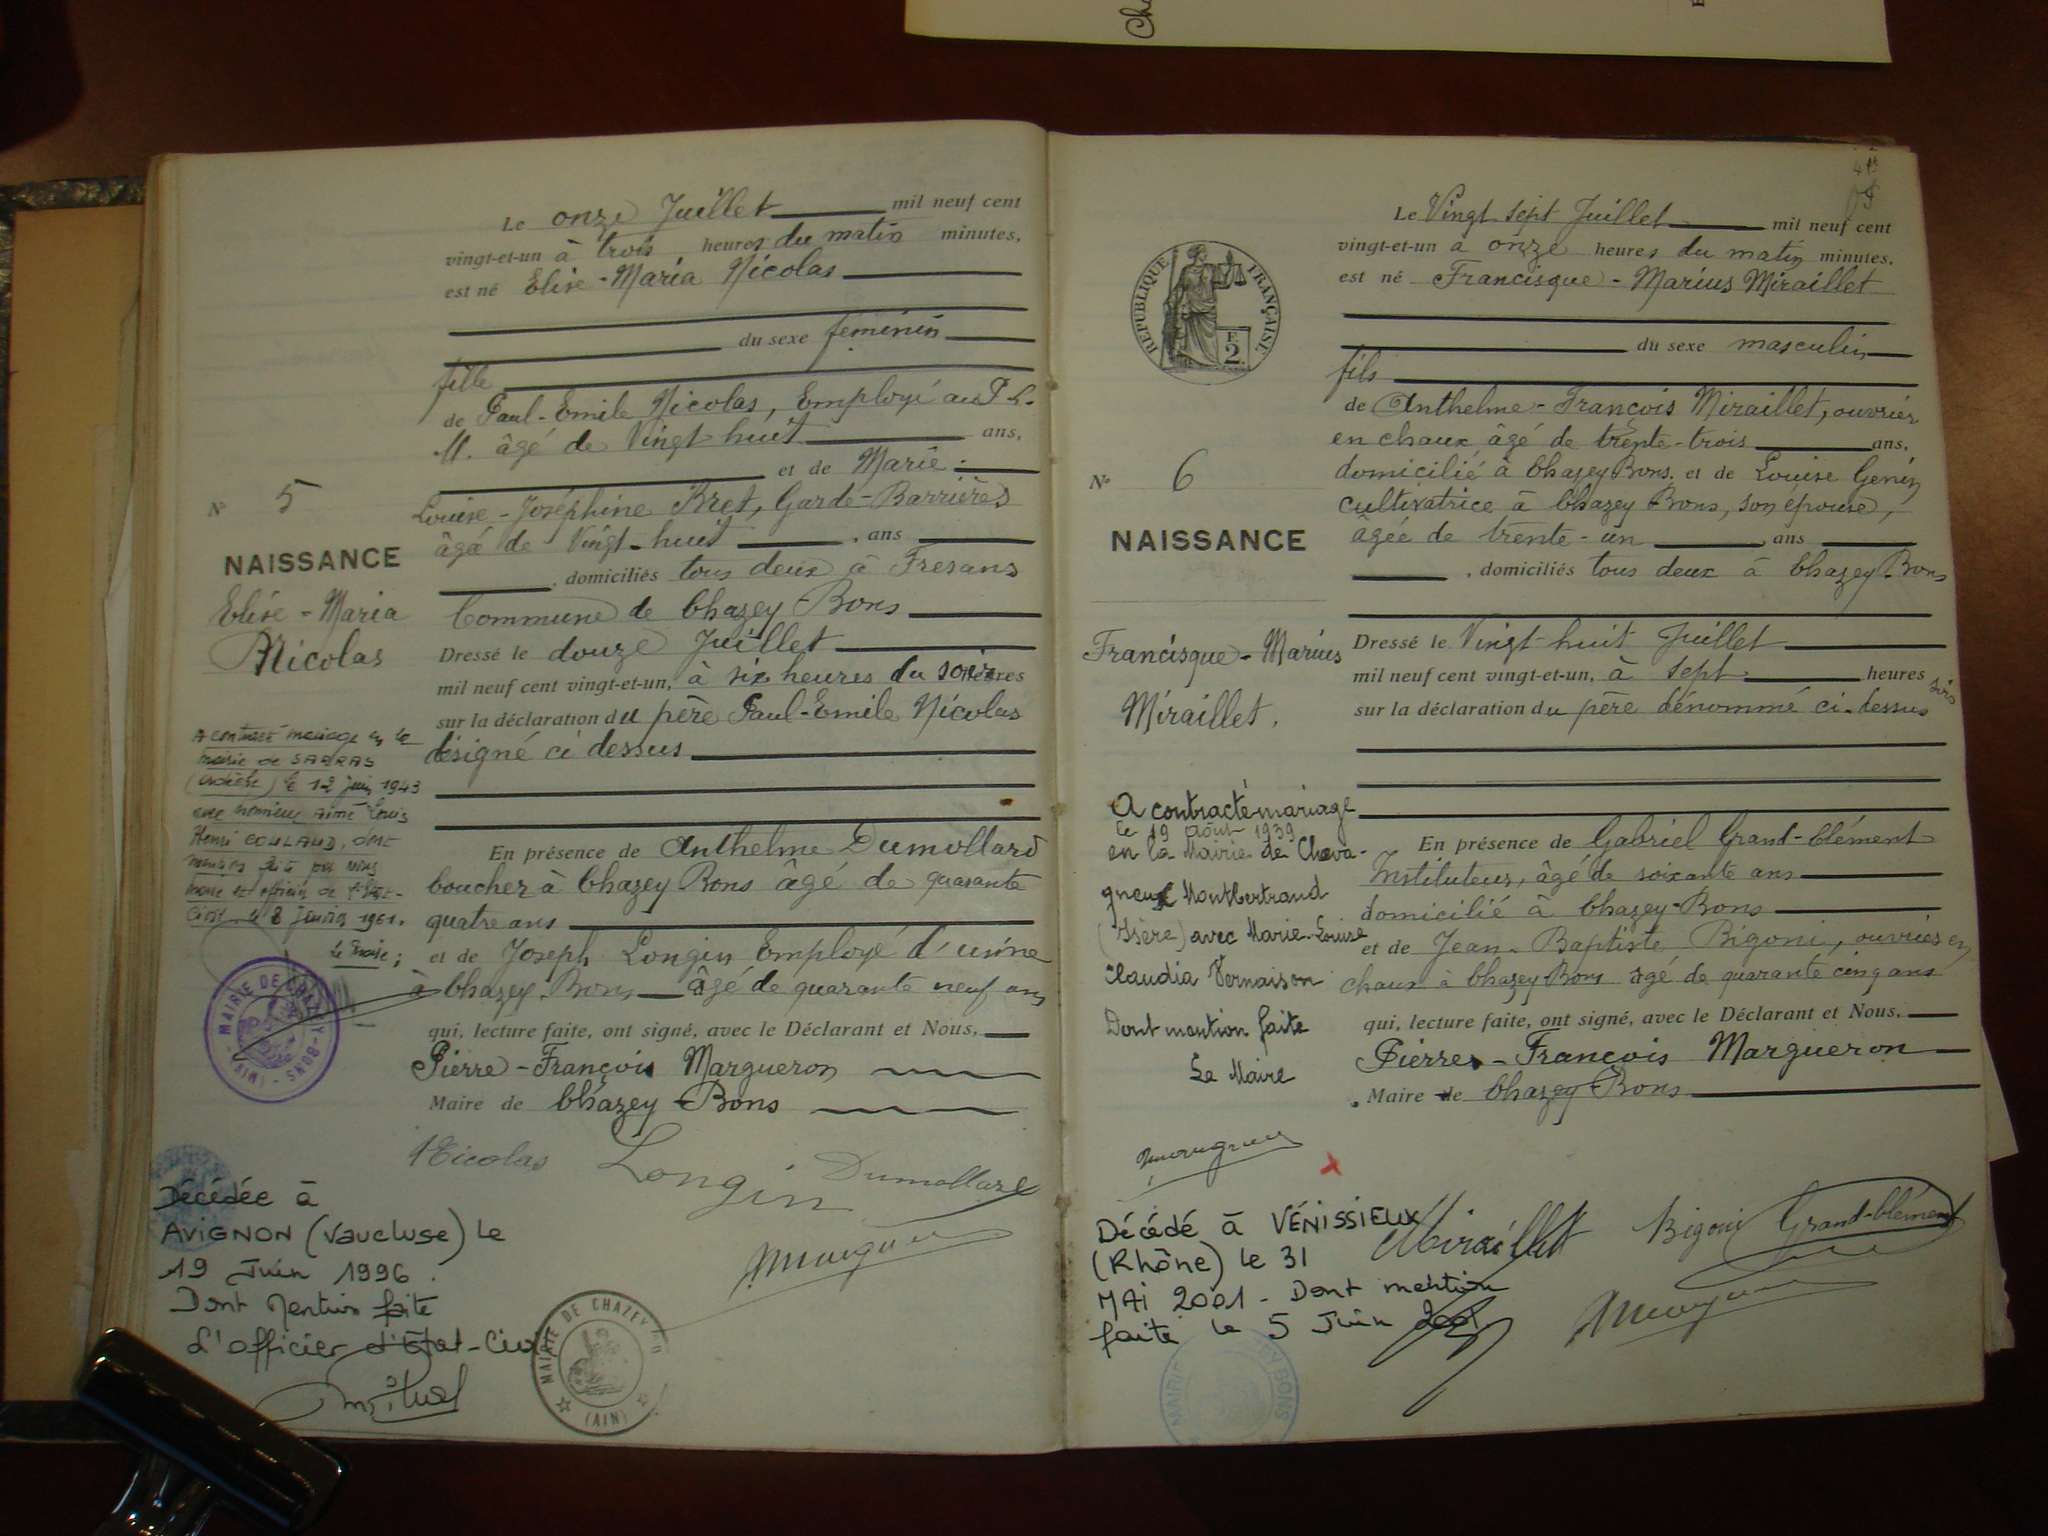 Le onze Juillet mil neuf cent
vingt-et-un à trois heures du matin minutes,
est né Elise-Maria Nicolas
du sexe féminin
fille
de Paul-Emile Nicolas, Employé au P. L.
M. âgé de Vingt huit ans,
et de Marie-
Louise-Joséphine Bret, Garde-Barrières
âgé de Vingt-huit, ans
, domiciliés tous deux à Fresans
Commune de Chazey-Bons
Dressé le douze Juillet
mil neuf cent vingt-et-un, à six heures du soir heures
sur la déclaration du père Paul-Emile Nicolas
désigné ci dessus
En présence de Anthelme Dumollard
boucher à Chazey Bons âgé de quarante
quatre ans
et de Joseph Longin Employé d'usine
à Chazey-Bons âgé de quarante neuf ans
qui, lecture faite, ont signé, avec le Déclarant et Nous,
Pierre-François Margueron
Maire de Chazey-Bons
Nicolas Longin Dumollard
N° 5
NAISSANCE
Elise-Maria
Nicolas
A contracté mariage en la
mairie de SARRAS
(Ardèche) le 12 juin 1943
avec monsieur Aimé Louis
Henri COULAUD, dont
mention faite par nous
maire et officier de l'état-
civil le 8 1961.
Le Maire;
MAIRIE DE CHAZEY-BONS (AIN)
Décédée à
AVIGNON (Vaucluse) le
19 Juin 1996.
Dont Mention faite
L'officier d'Etat-Civil
MAIRIE DE CHAZEY
(AIN)
Le Vingt sept Juillet mil neuf cent
vingt-et-un à onze heures du matin minutes,
est né Francisque-Marius Miraillet
du sexe masculin
fils
de Anthelme-François Miraillet, ouvrier
en chaux âgé de trente-trois ans,
domicilié à Chazey Bons. et de Louise Genin
cultivatrice à Chazey Bons, son épouse,
âgée de trente-un, ans
, domiciliés tous deux à Chazey-Bons
Dressé le Vingt huit Juillet
mil neuf cent vingt-et-un, à sept heures soir
sur la déclaration du père dénommé ci-dessus
En présence de Gabriel Grand-Clément
Instituteur, âgé de soixante ans
domicilié à Chazey-Bons
et de Jean-Baptiste Bigoni, ouvrier en
chaux à Chazey Bons agé de quarante cinq ans
qui, lecture faite, ont signé, avec le Déclarant et Nous,
Pierre-François Margueron
Maire de Chazey-Bons
Miraillet Bigoni Grand-Clément
REPUBLIQUE FRANÇAISE
F.
2.
N° 6
NAISSANCE
Francisque-Marius
Miraillet.
A contracté mariage
le 19 Août 1939
en la Mairie de Chava-
gneux Montbertrand
(Isère) avec Marie-Louise
Claudia Vernaison
Dont mention faite
Le Maire
Décédé à VÉNISSIEUX
(Rhône) le 31
MAI 2001 - Dont mention
faite le 5 Juin 2001